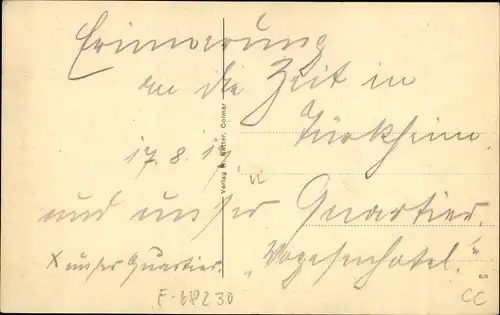 Erinnerung
an die Zeit in
Türkheim.
17. 8. 15.
und unser Quartier.
"Vogesenhotel."
x unser Quartier.
Verlag Netter, Colmar
F-68230
CE